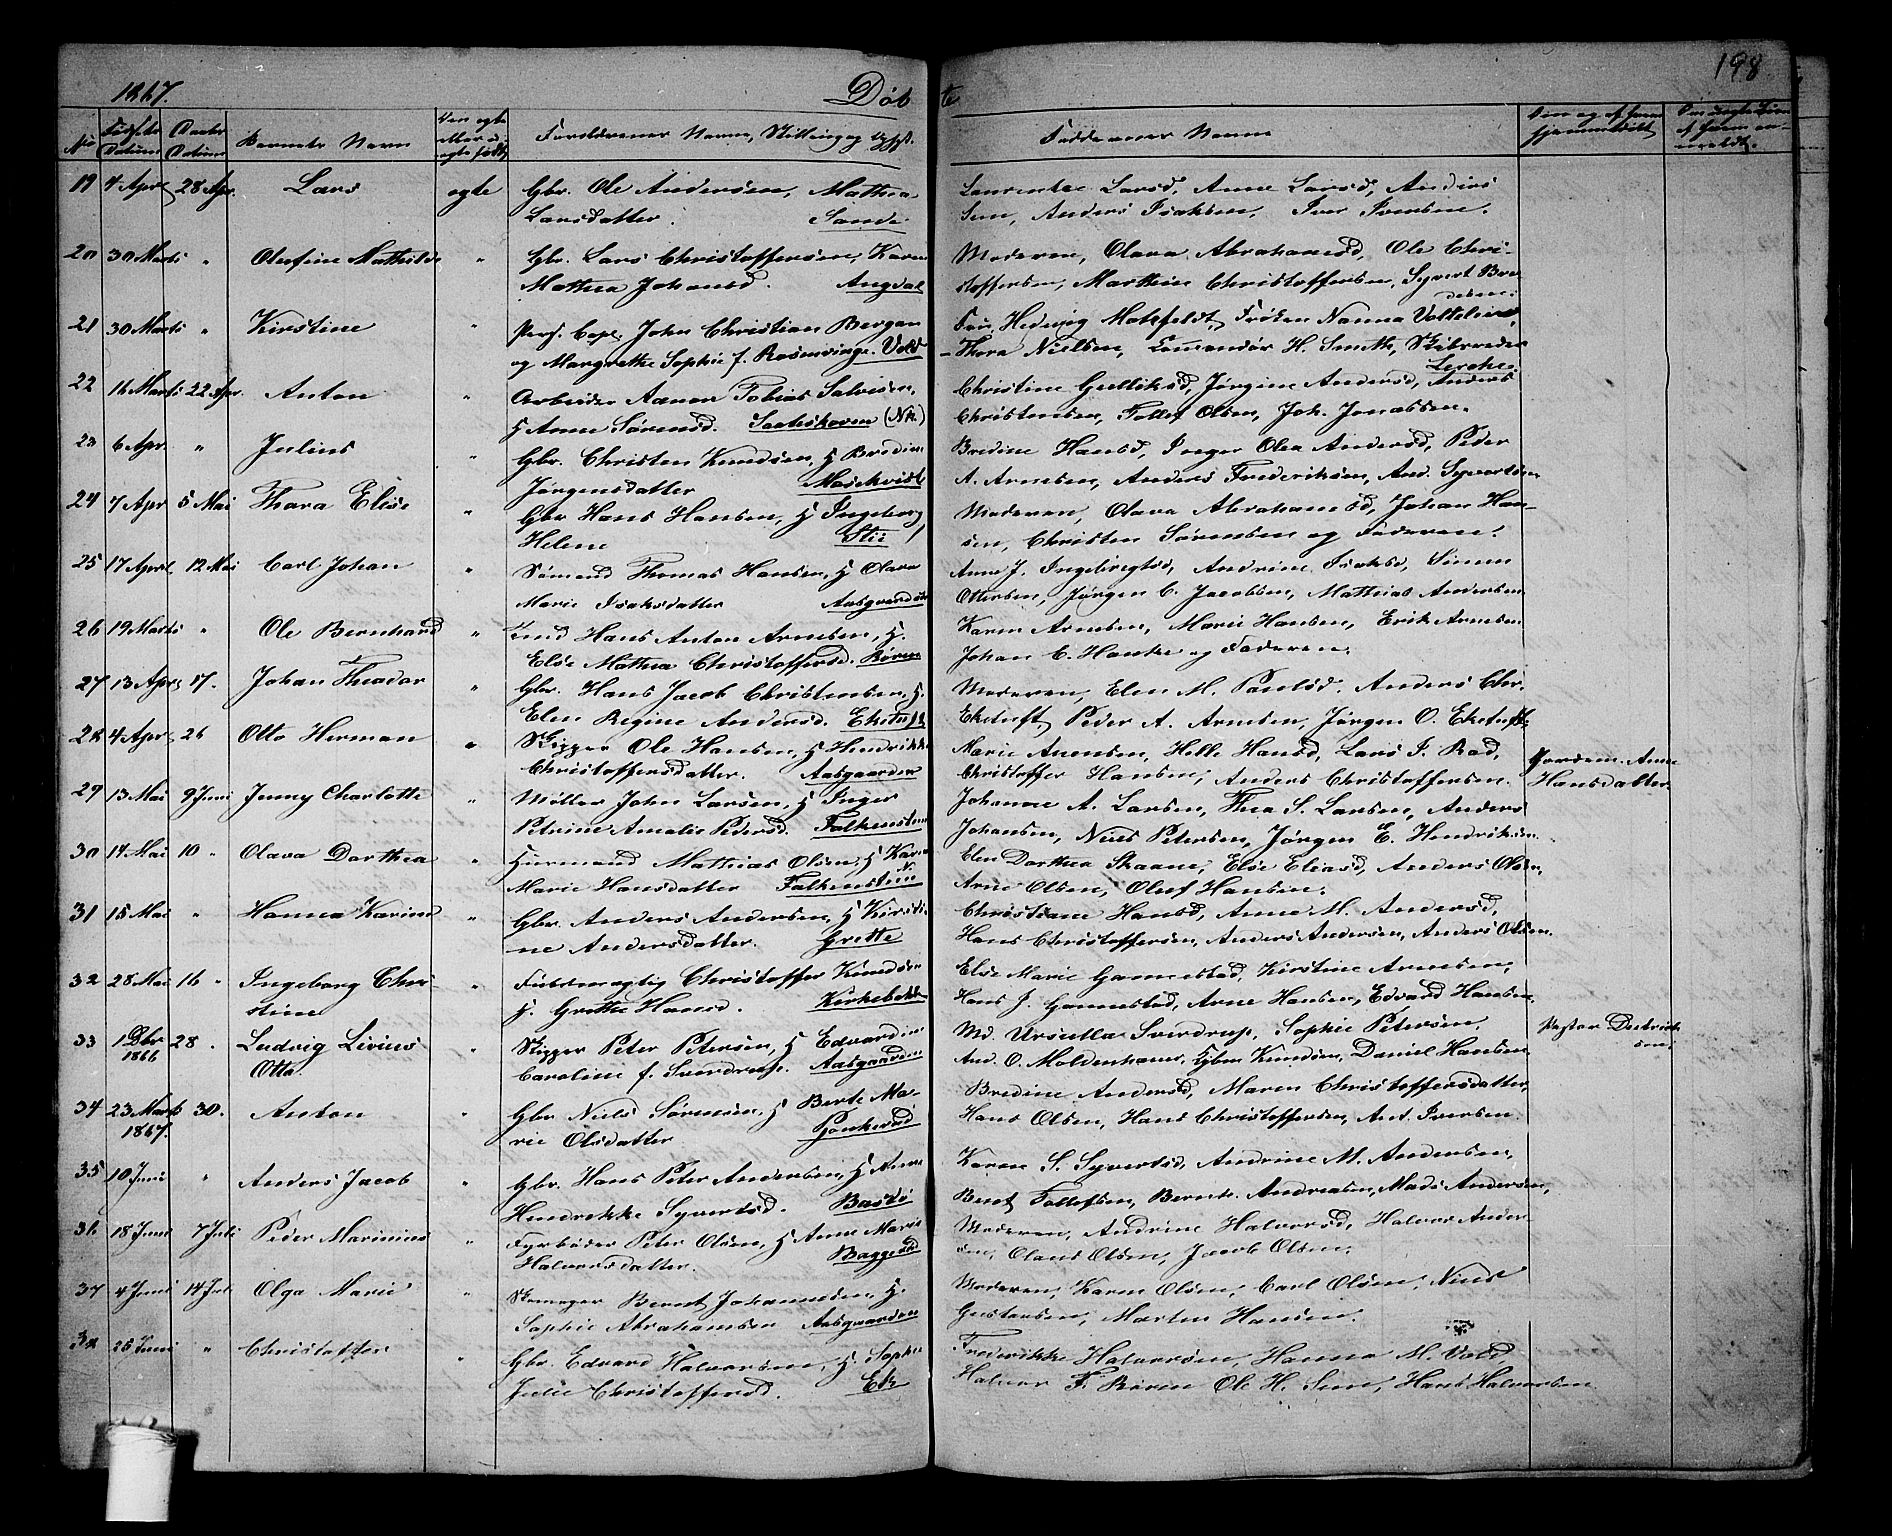 1867.
Døb
te
198
No
Fødsels Datum
Daabs Datum
Barnets Navn
Om ægte eller uægte født
Forældrenes Navne, Stilling og
Faddernes Navne
19 4 Apr 28 Apr. Lars ægte Gbr. Ole Andersen, Mathea Laurentze Larsd, Anne Larsd, Anders
Larsdatter. Sande Sem, Anders Isaksen, Iver Iversen.
20 30 Marts " Olufine Mathilde " Gbr. Lars Christoffersen, Karen Moderen, Olava Abrahamsd, Ole Chri-
Mathea Johansd. Angdal stoffersen, Marthin Christoffersen, Syvert Bre
21 30 Marts " Kirstine " John Christian Bergan Fru Hedevig Motzfeldt, Frøken Nanna
og Margrethe Sophie f. Rosenvinge. Vold Thora Nielsen, H. Smith,
Lerche.
22 16 Marts 22 Apr. Anton " Arbeider Aanon Tobias Salvesen, Christine Gulliksd, Jørgine Andersd, Anders
H Anne Sørensd. (Nk.) Christensen, Tollef Olsen, Joh. Jonassen.
23 6 Apr. " Julius " Gbr. Christen Knudsen, H Bredine Bredine Hansd, Inger Olea Andersd, Peder
Jørgensdatter A. Arnesen, Anders Frederiksen, And. Syvertsen
24 7 Apr 5 Mai Thora Elise " Gbr Hans Hansen, H Ingeborg Moderen, Olava Abrahamsd, Johan Han-
Helene Stii sen, Christen Sørensen og Faderen.
25 17 Apr 12 Mai Carl Johan " Sømand Thomas Hansen, H Olava Anne J. Ingebregtsd, Andrine Isaksd, Simen
Marie Isaksdatter Aasgaarden Ottersen, Jørgen C. Jacobsen, Mathias Andersen
26 19 Marts " Ole Bernhard " Hans Anton Arnesen, H. Karen Arnesen, Marie Hansen, Erik Arnesen
Else Mathea Christoffersd. Røren Johan C. Hanke og Faderen.
27 13 Apr 17. Johan Theodor " Gbr. Hans Jacob Christensen, H. Moderen, Elen M. Paulsd. Anders Chr.
Elen Regine Andersd. Eketuft Eketuft, Peder A. Arnesen, Jørgen O. Eketuft
28 4 Apr 26 Otto Herman " Skipper Ole Hansen, H Hendrikke Marie Anensen, Helle Hansd, Lars J. Rød, Jordem. Anne
Christoffersdatter. Aasgaarden Christoffer Hansen, Anders Christoffersen. Hansdatter
29 13 Mai 9 Juni Jenny Charlotte " Møller John Larsen, H Inger Johanne A. Larsen, Thea S. Larsen, Anders
Petrine Amalie Pedersd. Falkensten Johansen, Niels Petersen, Jørgen E. Hendriksen.
30 14 Mai 10 " Olava Dorthea " Huusmand Mathias Olsen, H Karen Elen Dorthea Skaane, Else Eliasd, Anders Olsen,
Marie Hansdatter N. Falkensten Arne Olsen, Oluf Hansen.
31 15 Mai " Hanna Karine " Gbr. Anders Andersen, H Kirsti- Christiane Hansd, Anne M. Andersd,
ne Andersdatter. Grette Hans Christoffersen, Anders Andersen, Anders Olsen.
32 28 Mai 16 " Ingeborg Chri- " Christoffer Knudsen Else Marie Gannestad, Kirstine Arnesen,
stine H. Grethe Hansd. Kirkebakken Hans J. Gannestad, Arne Hansen, Edvard Hansen.
33 1 Dbr 28 " Ludvig Livius " Skipper Peter Petersen, H Edvardine Md. Ursulla Sverdrup, Sophie Petersen, Pastor Diedrich
1866 Otto. Caroline f. Sverdrup. Aasgaarden And. O. Moldenhauer, Gbr Knudsen, Daniel Hansen sen.
34 23 Marts 30. Anton " Gbr Niels Sørensen, H Berte Ma- Bredine Andersd, Maren Christoffersdatter,
1867. rie Olsdatter. Hans Olsen, Hans Christoffersen, Ant. Iversen.
35 10 Juni " Anders Jacob " Gbr. Hans Peter Andersen, H Anne Karen S. Syvertsd, Andrine M. Andersen,
Hendrikke Syvertsd. Bastø Bent Tollefsen, Bernt Andreasen, Mads Andersen,
36 18 Juni 7 Juli Peder Marinius " Fyrbøder Peter Olsen, H Anne Marie Moderen, Andrine Halvorsd, Halvor Ander-
Halvorsdatter. sen, Claus Olsen, Jacob Olsen.
37 4 Juni 14 Juli Olga Marie " Skomager Bernt Johannesen, H. Moderen, Karen Olsen, Carl Olsen, Niels
Sophie Abrahamsen Aasgaarden Gustavsen, Morten Hansen.
38 25 Juni " Christoffer " Gbr. Edvard Halvorsen, H Sophie Frederikke Halvorsen, Hanna M. Vold,
Julie Christoffersd. Ek Halvor F. Røren Ole H. Sem, Hans Halvorsen